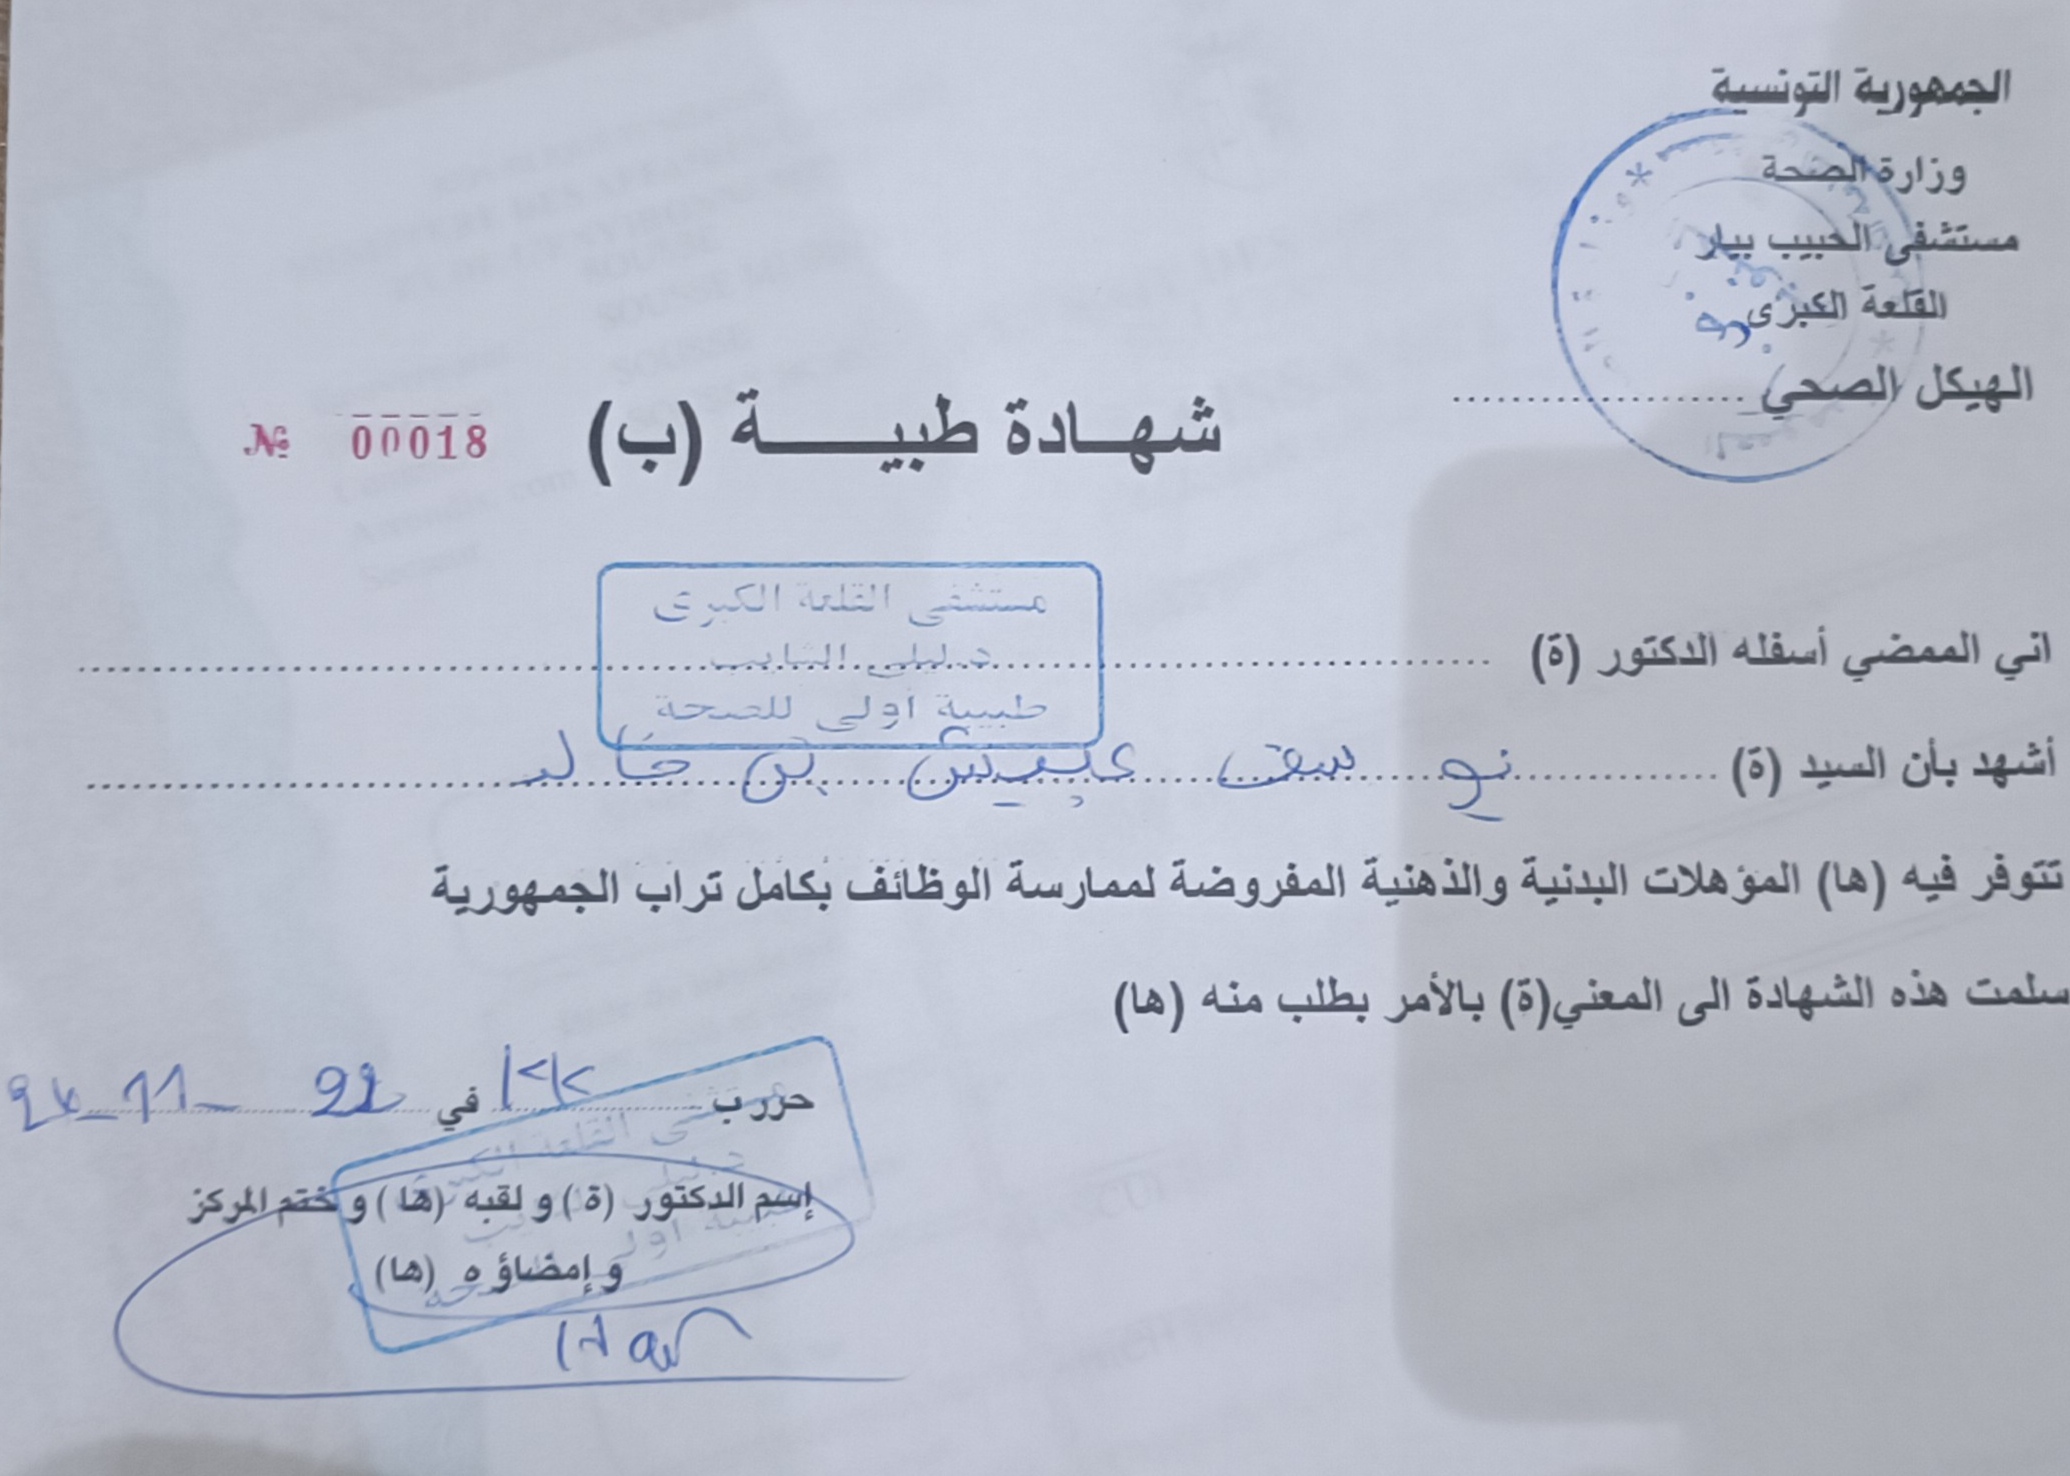 الجمهورية التونسية
وزارة الصحة
مستشفى الحبيب بيار
القلعة الكبرى
الهيكل الصحي ....................
شهادة طبية (ب)
№ 00018
مستشفى القلعة الكبرى
د. ليلى الشايب
طبيبة أولى للصحة
اني الممضي أسفله الدكتور (ة)
أشهد بأن السيد (ة) يوسف بن خالد
تتوفر فيه (ها) المؤهلات البدنية والذهنية المفروضة لممارسة الوظائف بكامل تراب الجمهورية
سلمت هذه الشهادة الى المعني(ة) بالأمر بطلب منه (ها)
حرر ب في
إسم الدكتور (ة) و لقبه (ها) و ختم المركز
و إمضاؤه (ها)